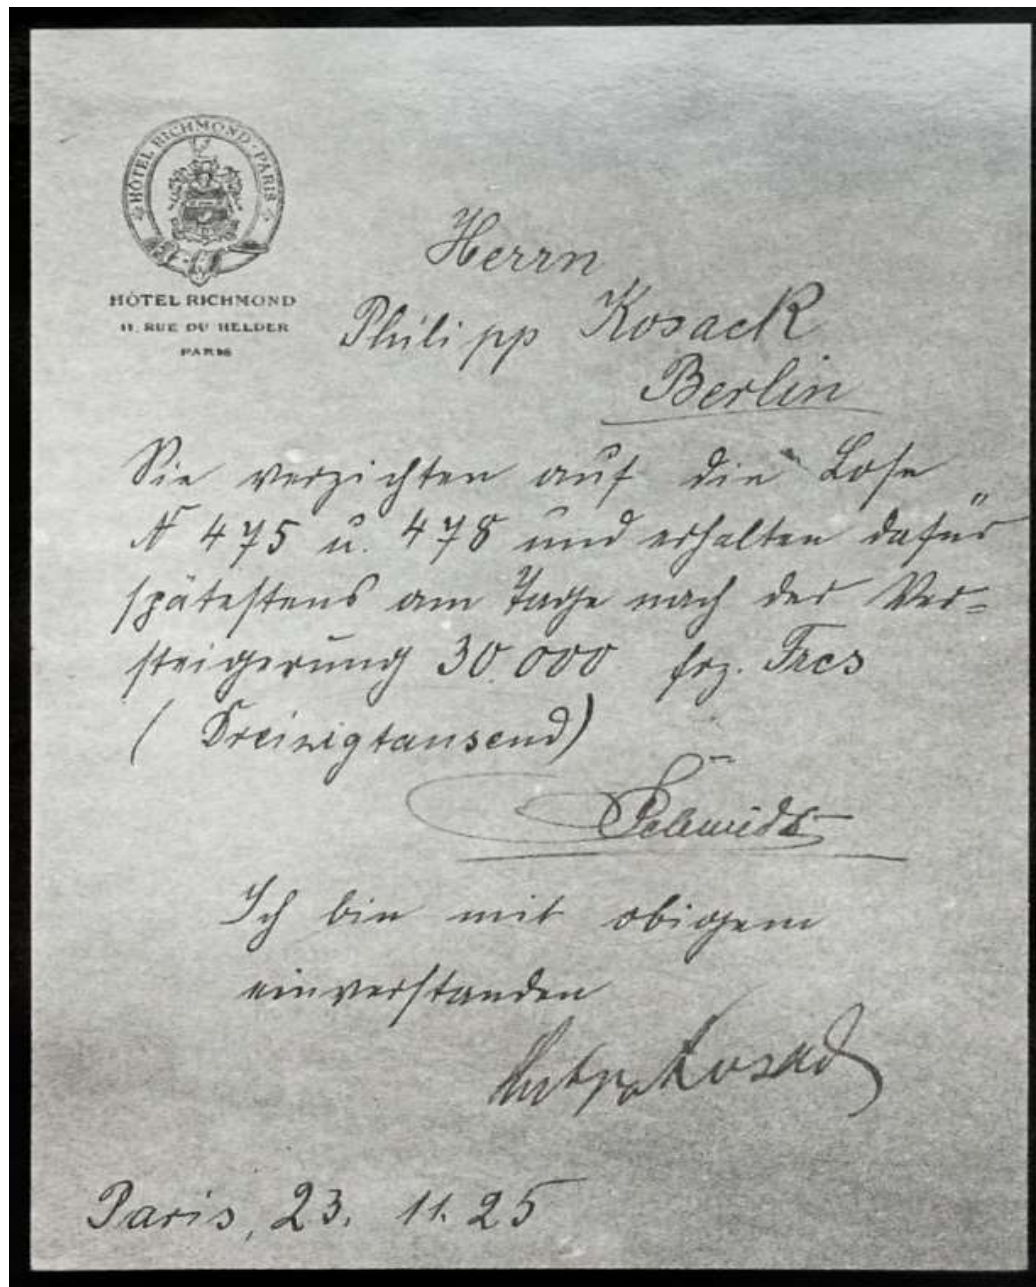 HÔTEL RICHMOND · PARIS
HÔTEL RICHMOND
11, RUE DU HELDER
PARIS
Herrn
Philipp Kosack
Berlin
Sie verzichten auf die Lose
N 475 u. 478 und erhalten dafür
spätestens am Tage nach der Ver=
steigerung 30.000 frz. Frcs
(Dreizigtausend)
Schmidt
Ich bin mit obigem
einverstanden
Kosack
Paris, 23. 11. 25